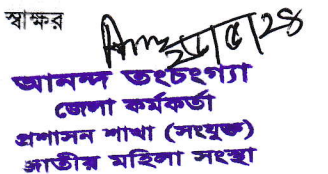 স্বাক্ষর
২৮/৫/২৪
আনন্দ তংচংগ্যা
জেলা কর্মকর্তা
প্রশাসন শাখা (সংযুক্ত)
জাতীয় মহিলা সংস্থা